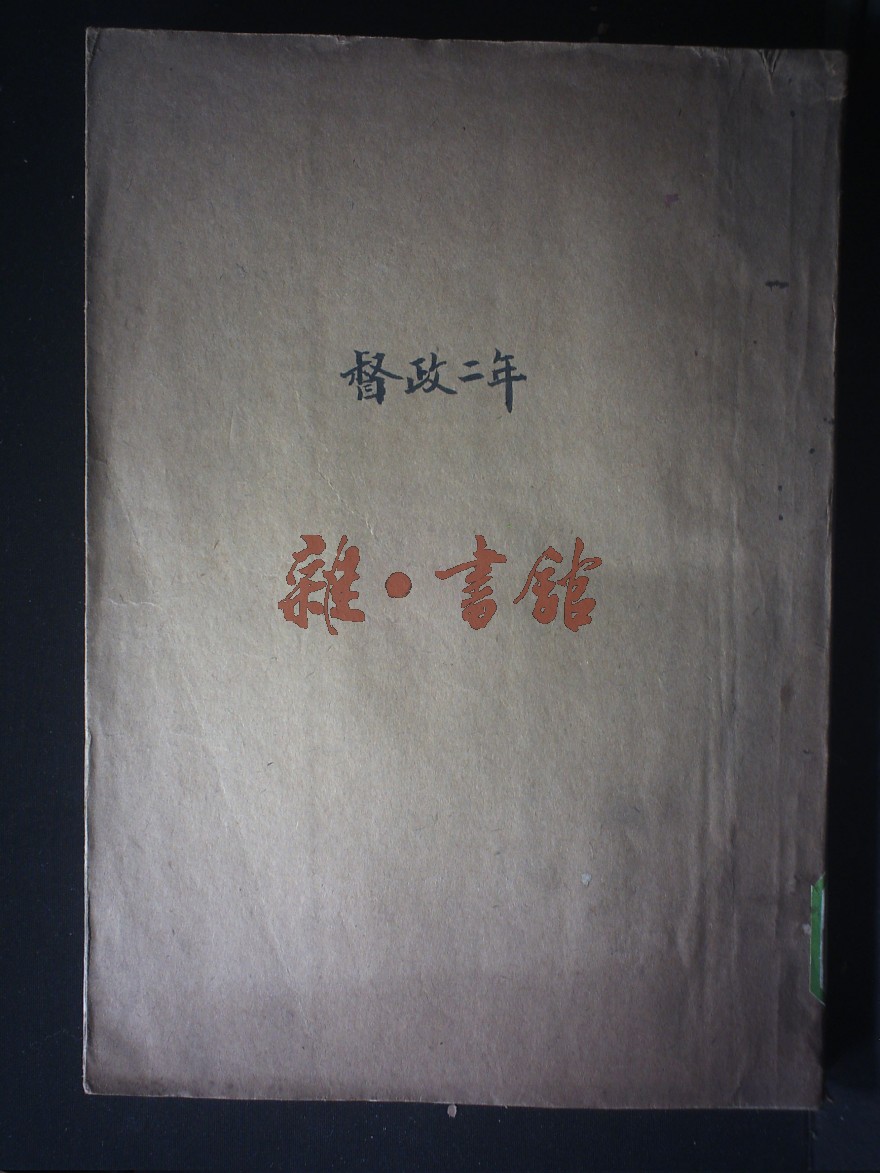 督政二年
雜·書館